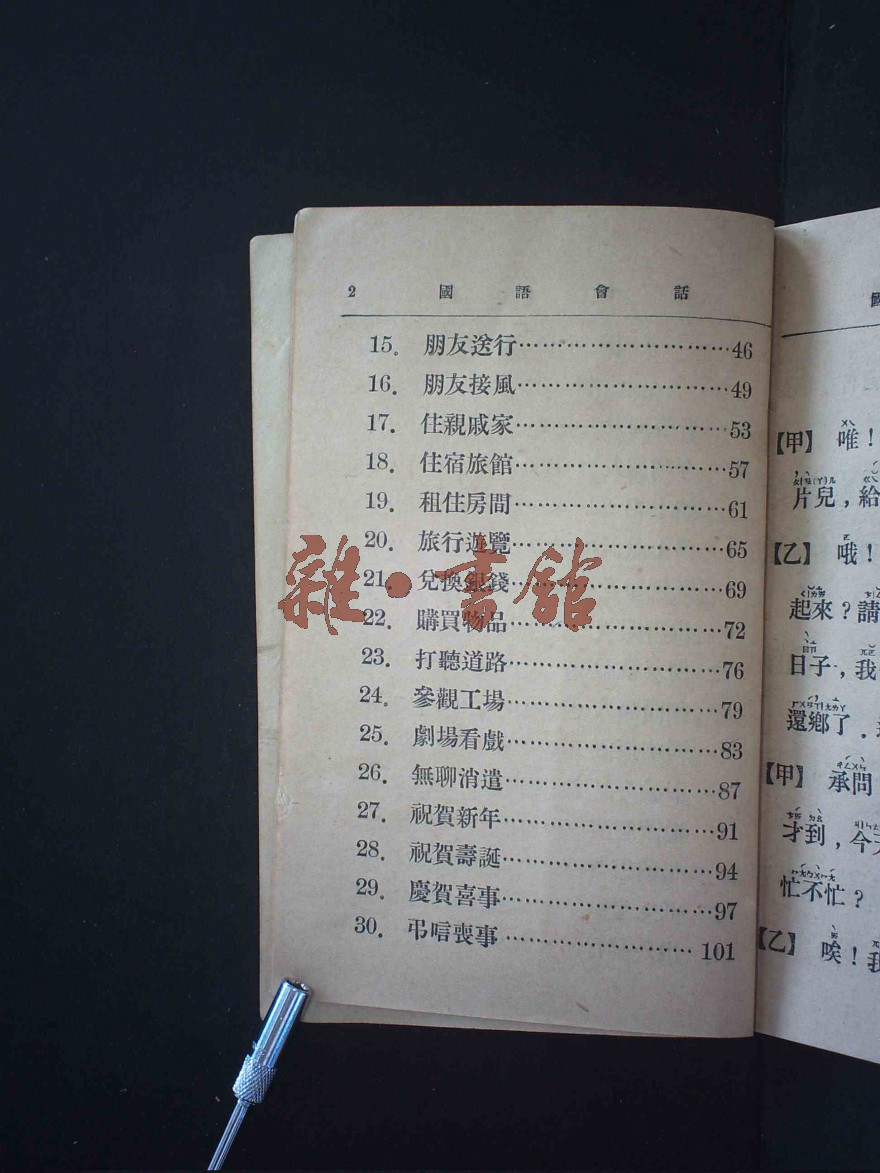 2 國語會話
15. 朋友送行…………………………46
16. 朋友接風…………………………49
17. 住親戚家…………………………53
18. 住宿旅館…………………………57
19. 租住房間…………………………61
20. 旅行遊覽…………………………65
21. 兌換銀錢…………………………69
22. 購買物品…………………………72
23. 打聽道路…………………………76
24. 參觀工場…………………………79
25. 劇場看戲…………………………83
26. 無聊消遣…………………………87
27. 祝賀新年…………………………91
28. 祝賀壽誕…………………………94
29. 慶賀喜事…………………………97
30. 弔唁喪事……………………101
雜·書館
國
【甲】 唯!
片兒,給
【乙】 哦!
起來?請
日子,我
還鄉了.
【甲】 承問
才到,今天
忙不忙?
【乙】 唉!我